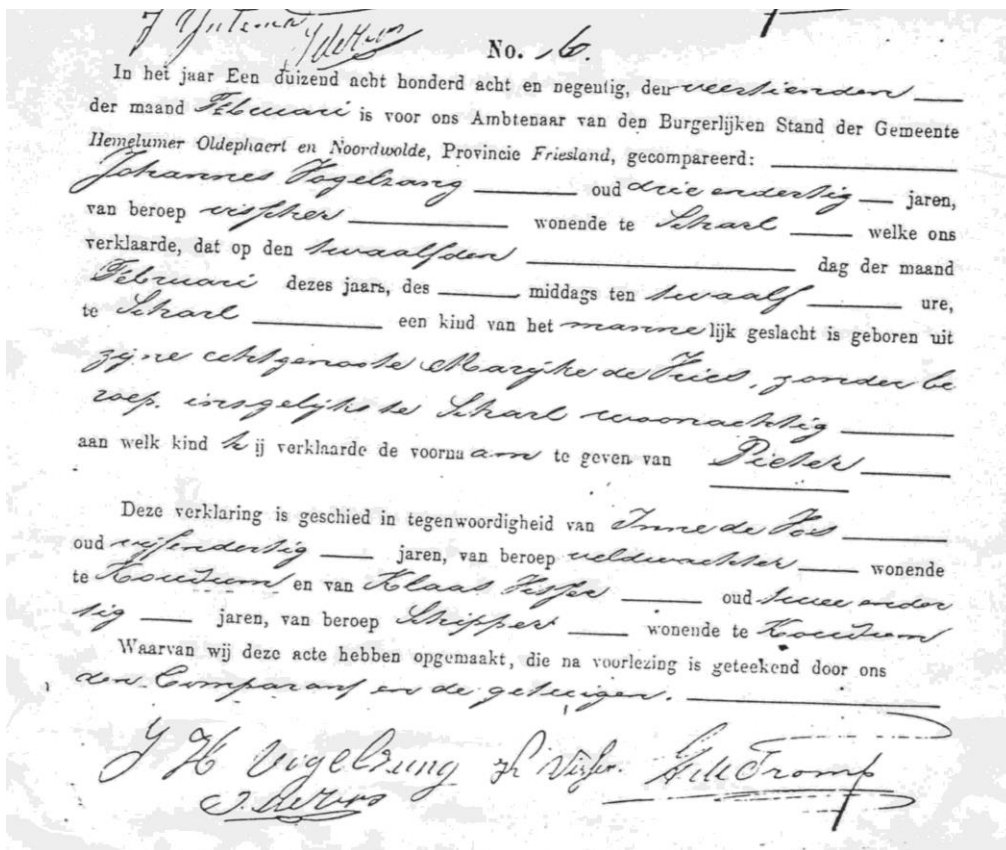 No. 16.
In het jaar Een duizend acht honderd acht en negentig, den veertienden
der maand Februari is voor ons Ambtenaar van den Burgerlijken Stand der Gemeente
Hemelumer Oldephaert en Noordwolde, Provincie Friesland, gecompareerd:
Johannes Vogelzang oud drie endertig jaren,
van beroep visscher wonende te Scharl welke ons
verklaarde, dat op den twaalfden dag der maand
Februari dezes jaars, des middags ten twaalf ure,
te Scharl een kind van het mannelijk geslacht is geboren uit
zijne echtgenoote Marijke de Vries, zonder be
roep. insgelijks te Scharl woonachtig
aan welk kind hij verklaarde de voornaam te geven van Pieter
Deze verklaring is geschied in tegenwoordigheid van Inne de Vos
oud vijfendertig jaren, van beroep veldwachter wonende
te Koudum en van Klaas Visser oud twee ender
tig jaren, van beroep Schipper wonende te Koudum
Waarvan wij deze acte hebben opgemaakt, die na voorlezing is geteekend door ons
den Comparant en de getuigen.
J H Vogelzang K Visser. Tromp
I. de Vos